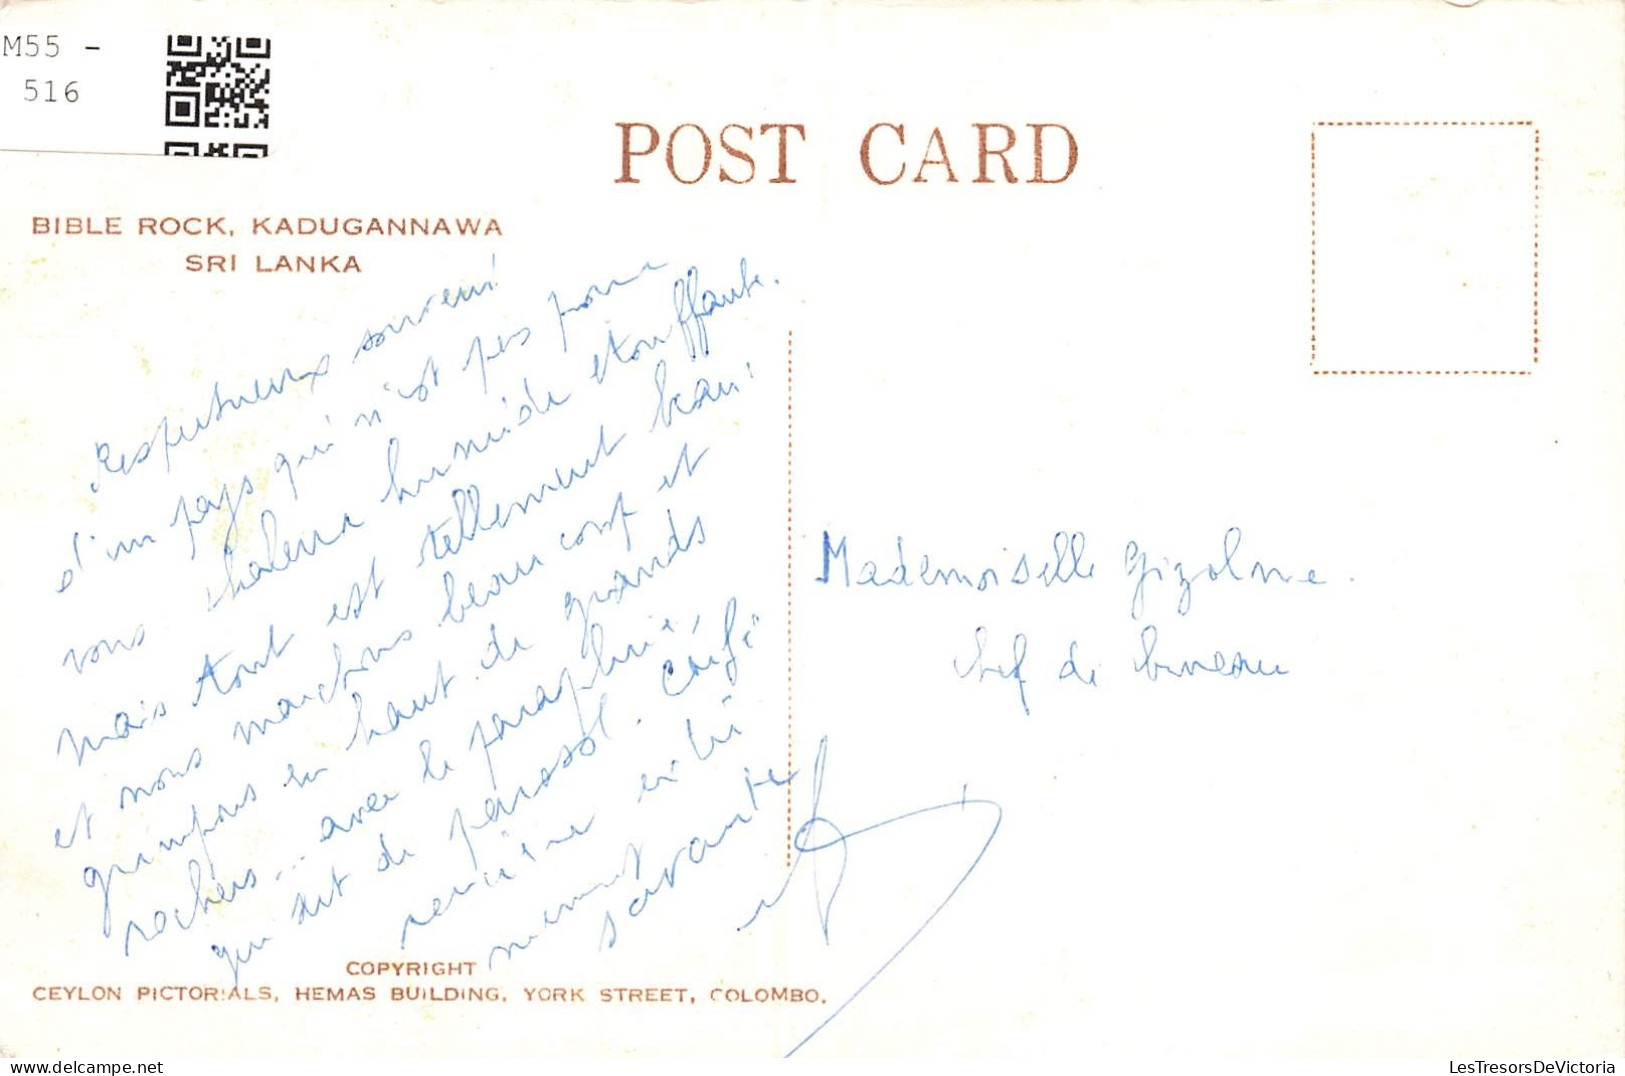 M55 -
516
POST CARD
BIBLE ROCK, KADUGANNAWA
SRI LANKA
Respectueux souvenir
d'un pays qui n'est pas pour
vous chaleur humide etouffante.
mais tout est tellement beau!
et nous marchons beaucoup et
grimpons en haut de grands
rochers... avec le parapluie,
qui sert de parasol.
savante
Mademoiselle
chef de bureau
COPYRIGHT
CEYLON PICTORIALS, HEMAS BUILDING, YORK STREET, COLOMBO.
LesTresorsDeVictoria